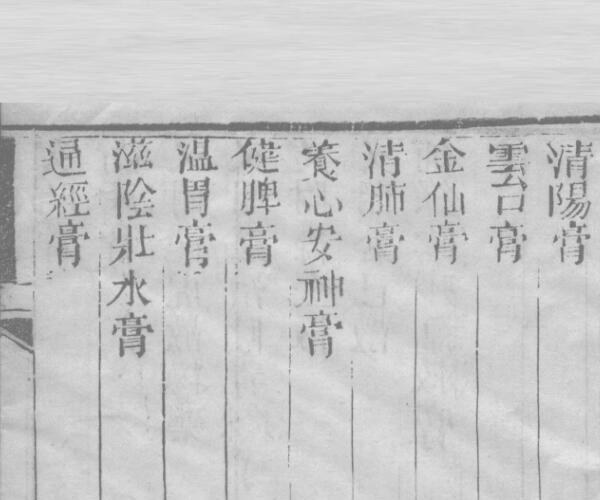 清陽膏
雲台膏
金仙膏
清肺膏
養心安神膏
健脾膏
温胃膏
滋陰壯水膏
通經膏